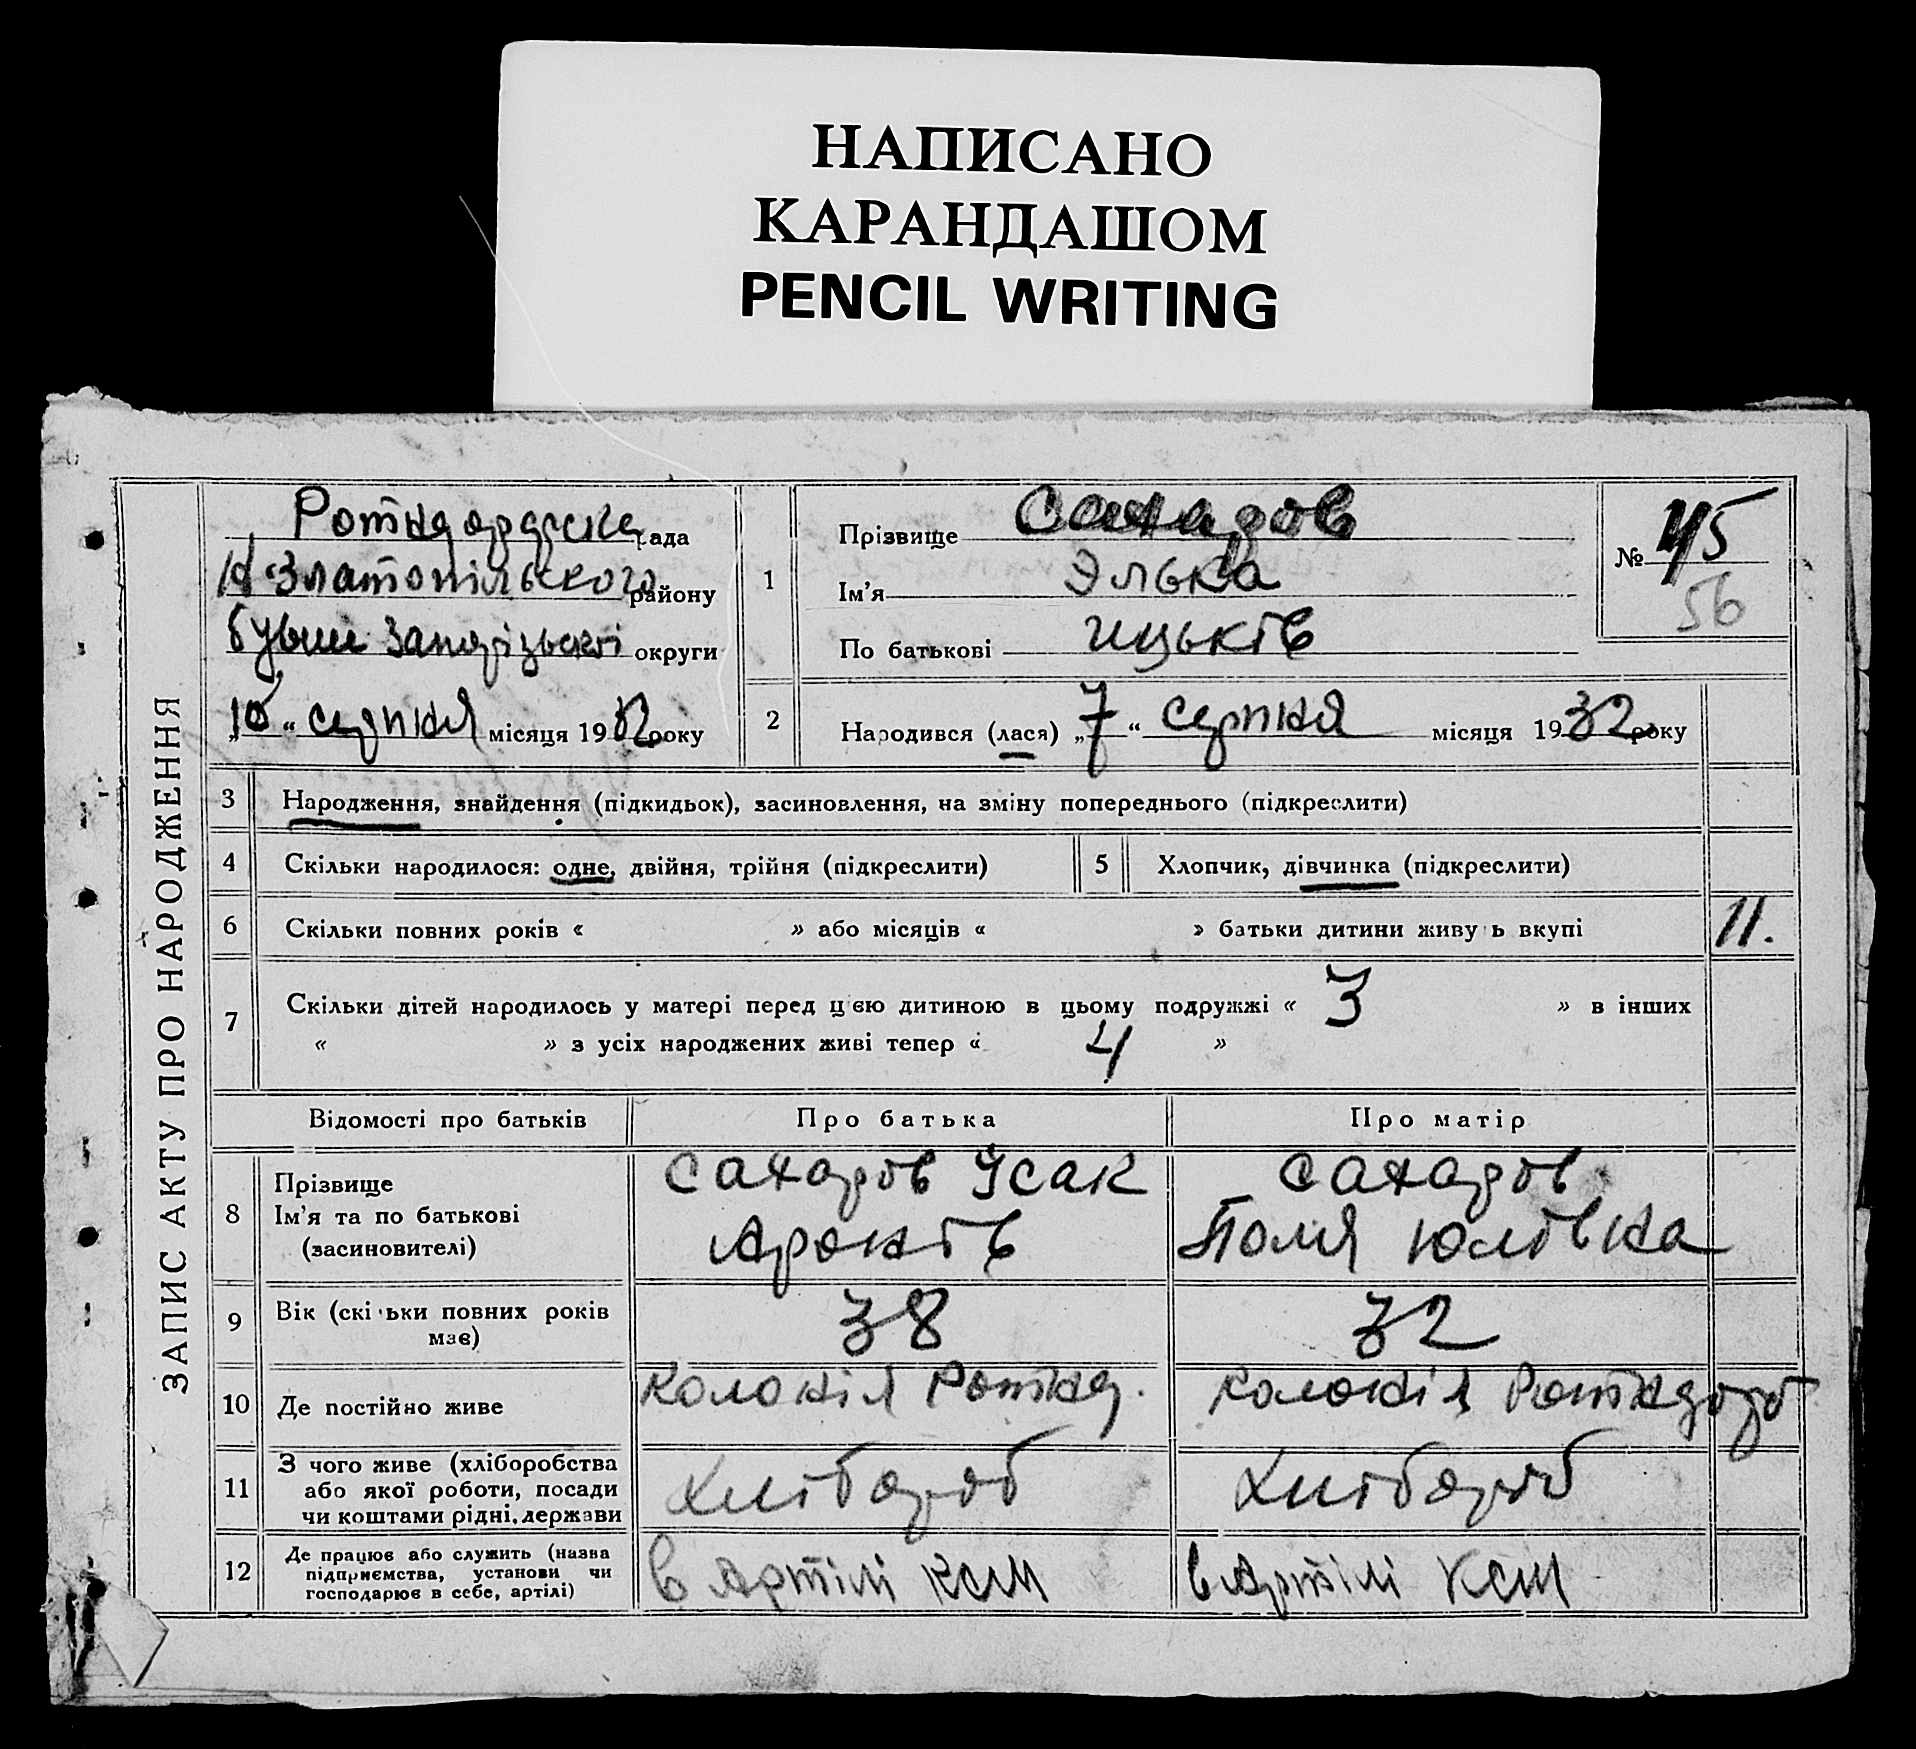 НАПИСАНО
КАРАНДАШОМ
PENCIL WRITING
ЗАПИС АКТУ ПРО НАРОДЖЕННЯ
рада
Н-Златопільського району
бувш Запорізької округи
„10“ серпня місяця 1932 року
1
Прізвище Сахаров
Ім'я Элька
По батькові Ицьків
№ 45
56
2
Народився (лася) „7“ серпня місяця 1932 року
3 Народження, знайдення (підкидьок), засиновлення, на зміну попереднього (підкреслити)
4 Скільки народилося: одне, двійня, трійня (підкреслити) 5 Хлопчик, дівчинка (підкреслити)
6 Скільки повних років « » або місяців « » батьки дитини живуть вкупі 11.
7 Скільки дітей народилось у матері перед цією дитиною в цьому подружжі « 3 » в інших
« » з усіх народжених живі тепер « 4 »
Відомості про батьків Про батька Про матір
8 Прізвище
Ім'я та по батькові
(засиновителі)
Сахаров Усак
Аронів
Сахаров
Поля Юлівна
9 Вік (скільки повних років
має)
38 32
10 Де постійно живе Колонія Ротнд. Колонія Ротндорф
11 З чого живе (хліборобства
або якої роботи, посади
чи коштами рідні, держави
Хлібороб Хлібороб
12 Де працює або служить (назва
підприємства, установи чи
господарює в себе, артілі)
в Артілі КСМ в Артілі КСМ